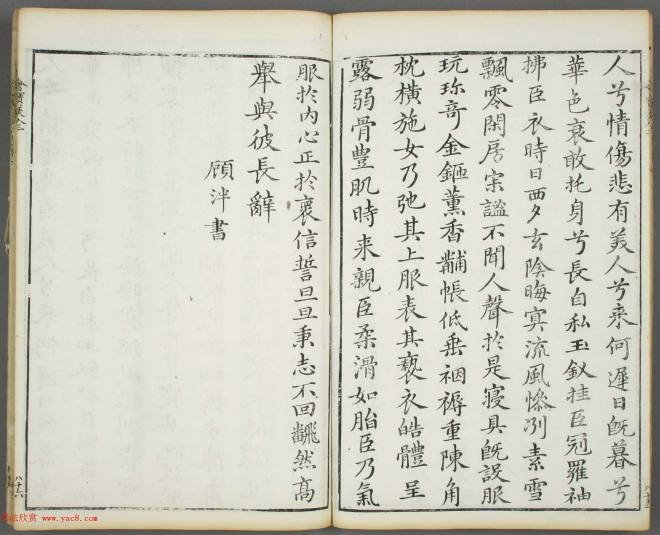 人兮情傷悲有美人兮来何遲日既暮兮
華色衰敢托身兮長自私玉釵挂臣冠羅袖
拂臣衣時日西夕玄陰晦冥流風慘冽素雪
飄零閑房寂謐不聞人聲於是寢具既設服
玩珍竒金鉔薰香黼帳低垂裀褥重陳角
枕橫施女乃弛其上服表其褻衣皓體呈
露弱骨豊肌時来親臣柔滑如脂臣乃氣
服於内心正於褱信誓旦旦秉志不回飜然高
舉與彼長辭
顧泮書
法欣赏 www.yac8.com